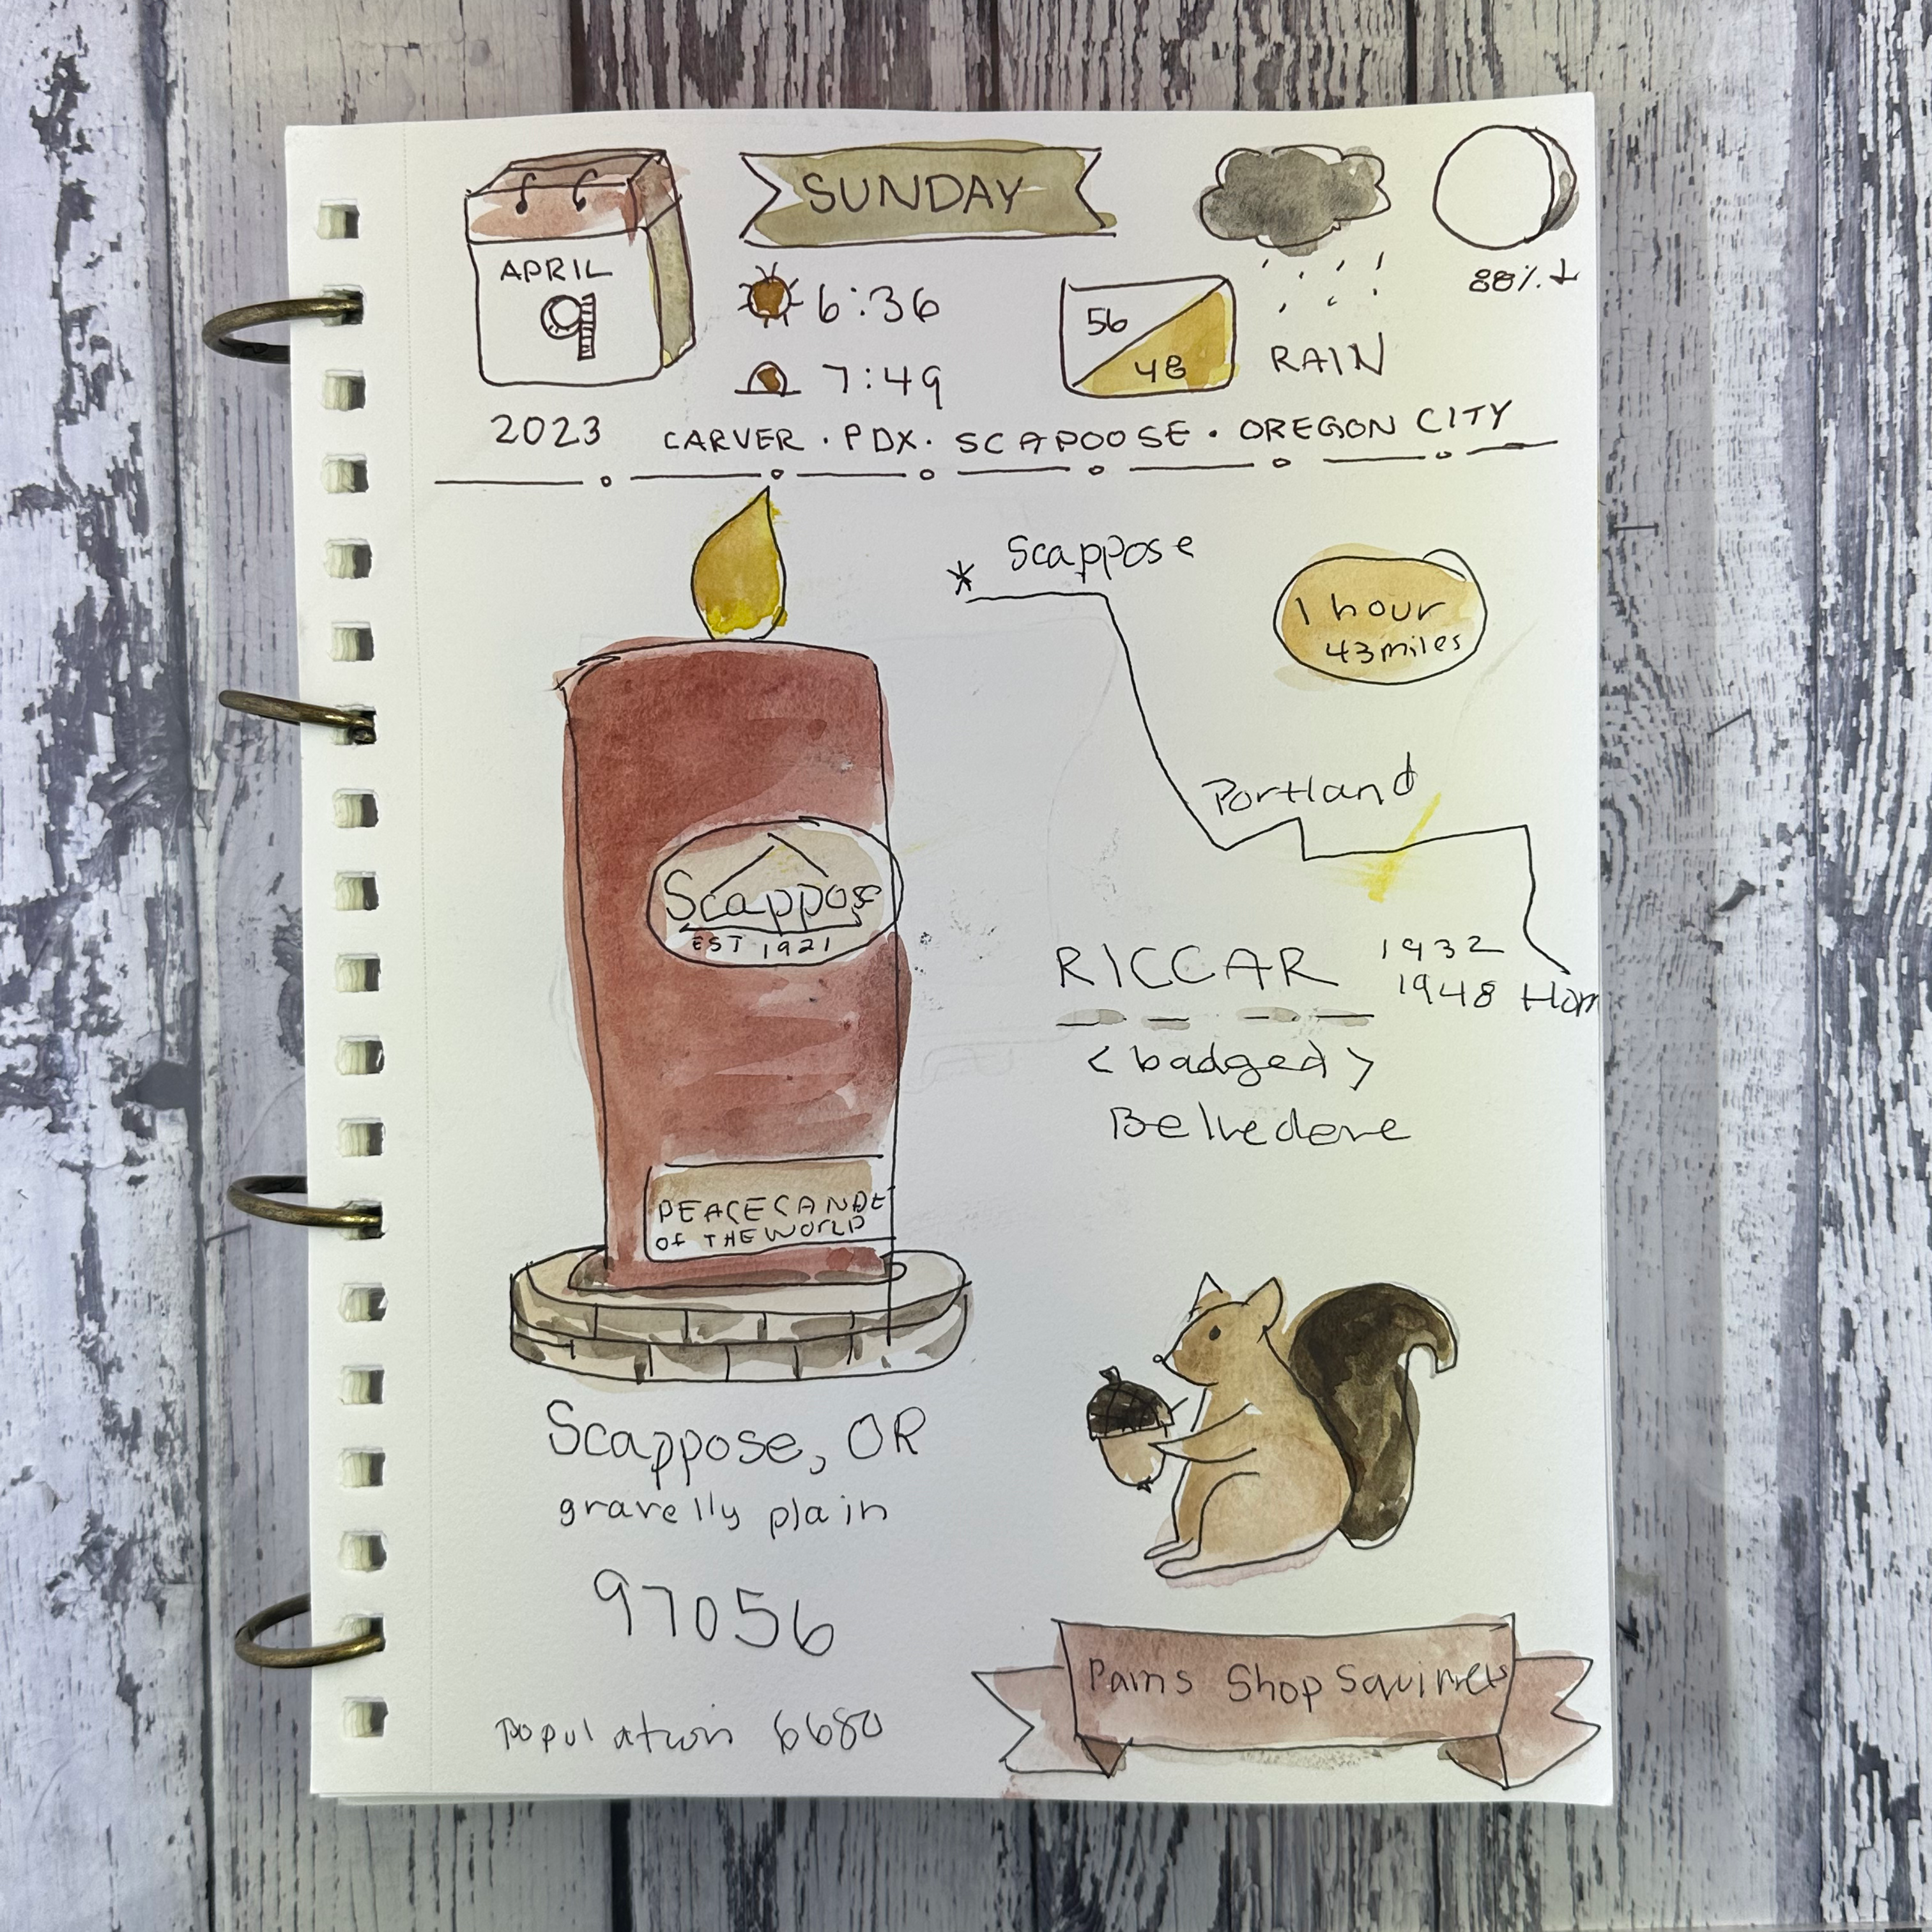 APRIL
9
SUNDAY
6:36
7:49
56
48
RAIN
88%↓
2023 CARVER · PDX · SCAPOOSE · OREGON CITY
* Scappose
1 hour
43 miles
Portland
Scappose
EST 1921
RICCAR 1932
1948 Hom
<badged>
Belvedere
PEACE CANDLE
OF THE WORLD
Scappose, OR
gravelly plain
97056
Population 6680
Pam's Shop Squirrels